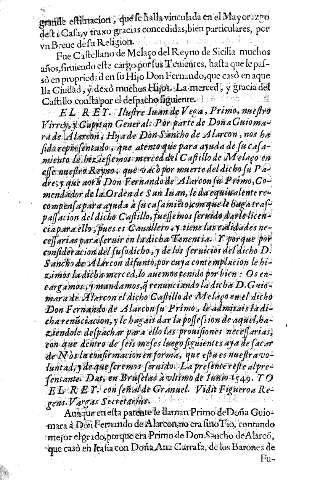 grande estimacion, que se halla vinculada en el Mayorazgo
desta Casa, y traxo gracias concedidas, bien particulares, por
vn Breue de su Religion.
Fue Castellano de Melaço del Reyno de Sicilia muchos
años, siruiendo este cargo por sus Tenientes, hasta que le pas-
sò en propriedad en su Hijo Don Fernando, que casò en aque
lla Ciudad, y dexò muchos Hijos. La merced, y gracia del
Castillo consta por el despacho siguiente.
EL REY. Ilustre Iuan de Vega, Primo, nuestro
Virrey, y Capitan General: Por parte de Doña Guioma-
ra de Alarcon, Hija de Don Sancho de Alarcon, nos ha
sido representado, que atento que para ayuda de su casa-
miento le hezissemos merced del Castillo de Melaço en
esse nuestro Reyno, que vacò por muerte del dicho su Pa-
dre, y que aora Don Fernando de Alarcon su Primo, Co-
mendador de la Orden de San Iuan, le da equiualente re-
compensa para ayuda à su casamiento, con que le haga tras-
passacion del dicho Castillo, fuessemos seruido darle licen-
cia para ello, pues es Cauallero, y tiene las calidades ne-
cessarias para seruir en la dicha Tenencia. Y porque por
consideracion del susodicho, y de los seruicios del dicho D.
Sancho de Alarcon difunto, por cuya contemplacion le hi-
zimos la dicha merced, lo auemos tenido por bien: Os en-
cargamos, y mandamos, que renunciando la dicha D. Guio-
mara de Alarcon el dicho Castillo de Melaço en el dicho
Don Fernando de Alarcon su Primo, le admitais la di-
cha renunciacion, y le hagais dar la possession de aquel, ha-
ziendole despachar para ello las prouisiones necessarias,
con que dentro de seis meses luego siguientes aya de sacar
de Nòs la confirmacion en forma, que esta es nuestra vo-
luntad, y de que seremos seruido. La presente reste al pre-
sentante. Dat. en Bruselas à vltimo de Iunio 1549. YO
EL REY. con señal de Granuel. Vidit Figueroa Re-
gens. Vargas Secretarius.
Aunque en esta patente le llaman Primo de Doña Guio-
mara à Don Fernando de Alarcon, no era sino Tio, contando
mejor el grado, porque era Primo de Don Sancho de Alarcõ,
que casò en Italia con Doña Ana Carrafa, de los Barones de
Fu-